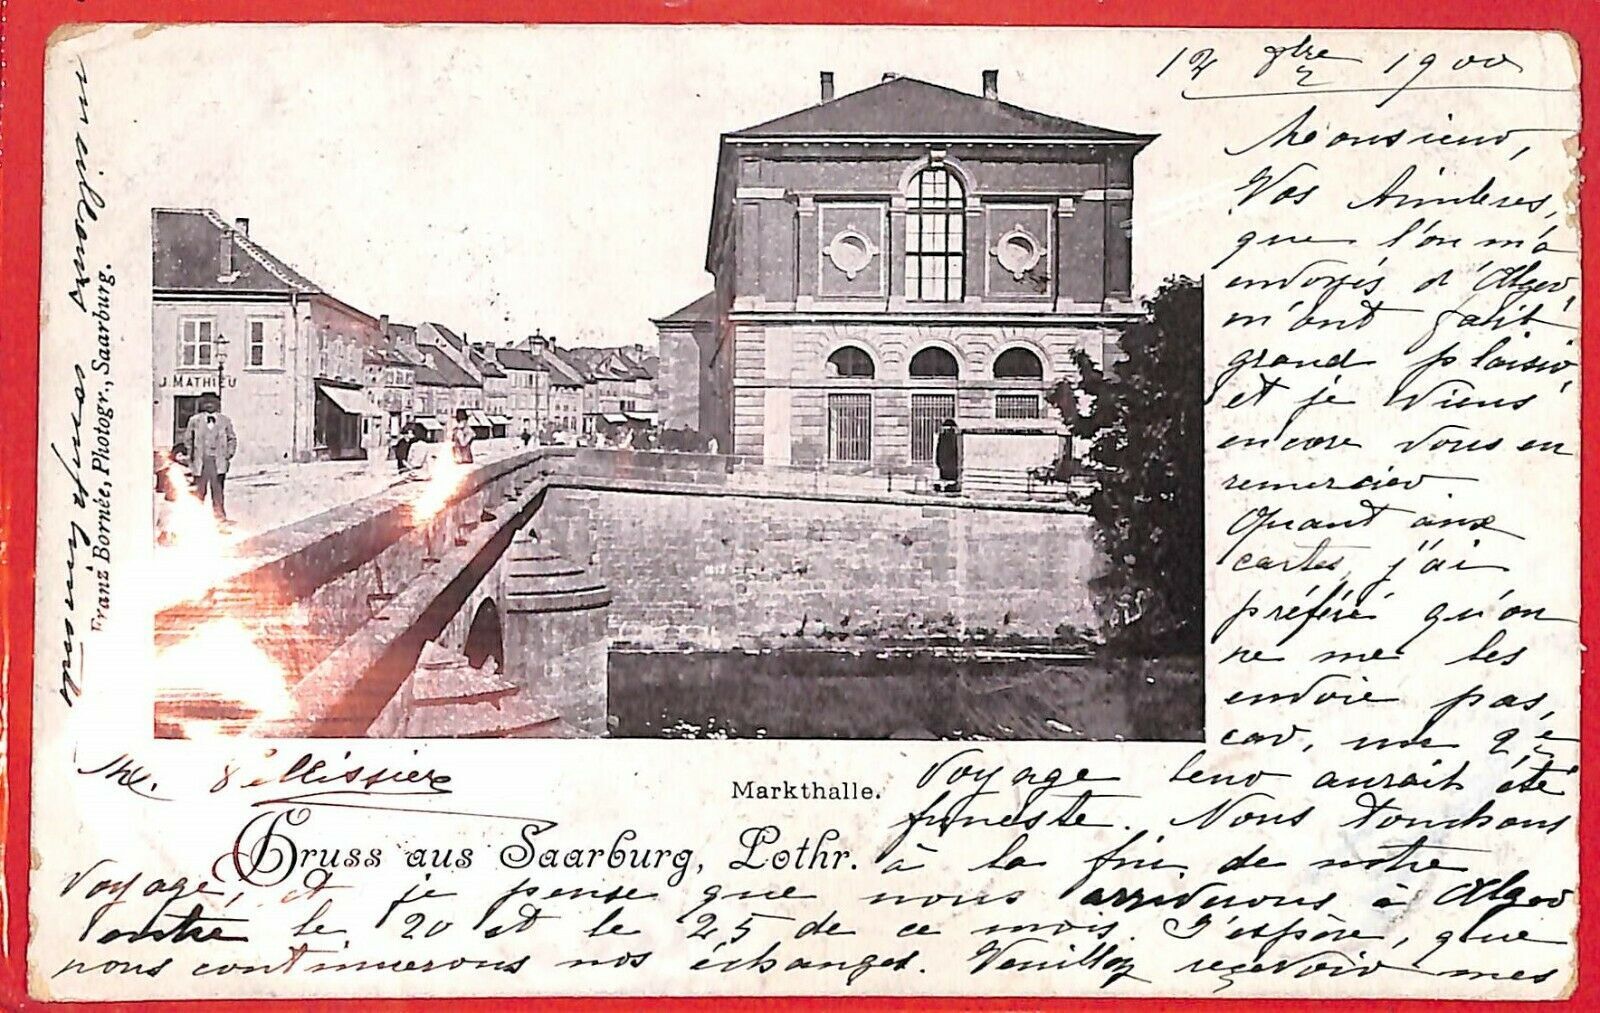 12 9bre 1900
Monsieur,
Vos timbres,
que l'on m'a
envoyés d'Alger
m'ont fait
grand plaisir,
et je viens
encore vous en
remercier.
Quant aux
cartes, j'ai
préféré qu'on
ne me les
envoie pas,
car, une 2e
voyage leur aurait été
funeste. Nous touchons
à la fin de notre
voyage, et je pense que nous arriverons à Alger
entre le 20 et le 25 de ce mois. J'espère, que
nous continuerons nos échanges. Veuillez recevoir mes
sincères
M. Pellissier
Franz Bornée, Photogr., Saarburg.
J. MATHIEU
Markthalle.
Gruss aus Saarburg, Lothr.